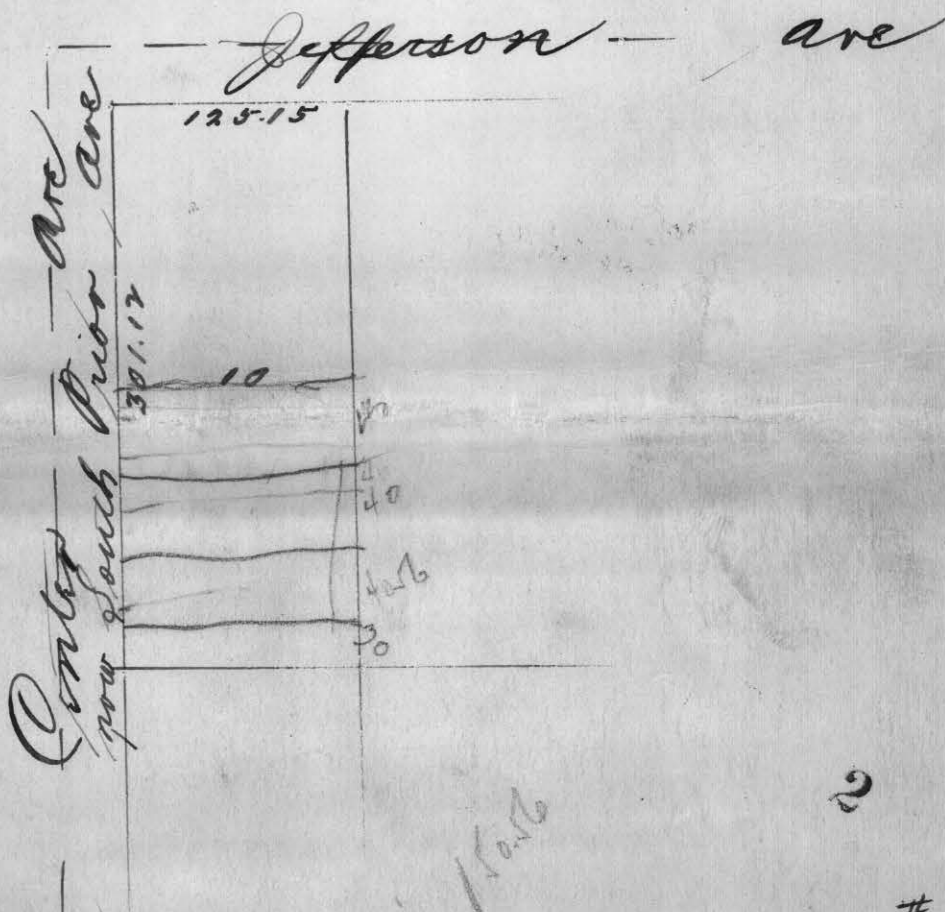 Jefferson ave
Center ave
now South Prior ave
125.15
301.12
10
40
40.56
30
150.56
2
#